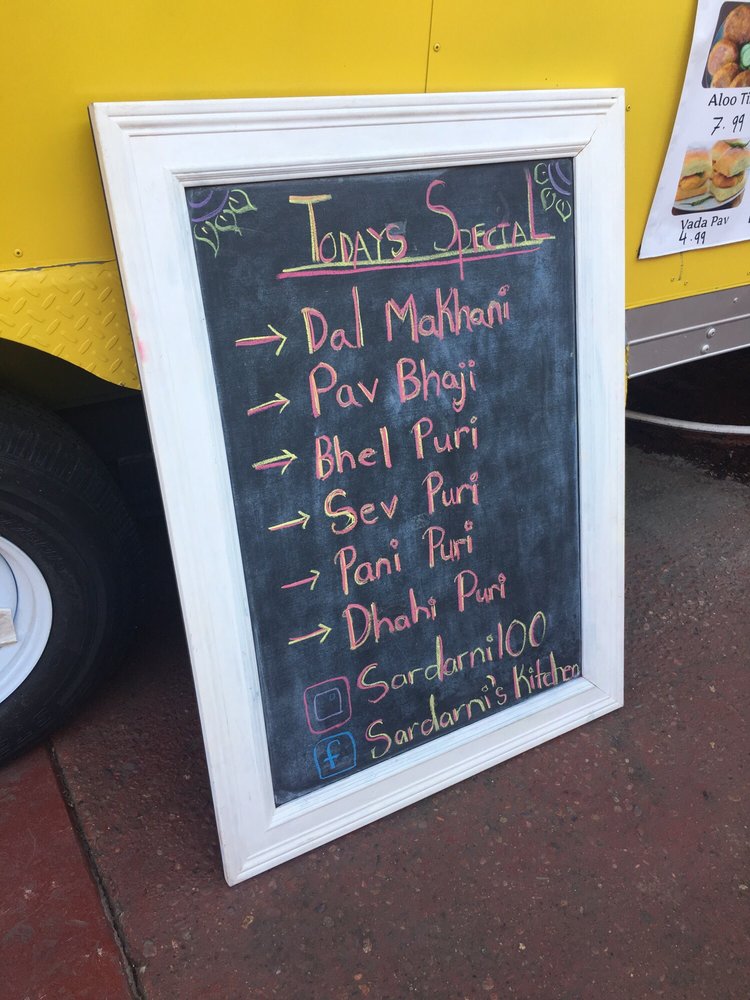 TODAYS SPECIAL
→ Dal Makhani
→ Pav Bhaji
→ Bhel Puri
→ Sev Puri
→ Pani Puri
→ Dhahi Puri
Sardarni100
f Sardarni's Kitchen
Aloo Ti
7.99
Vada Pav
4.99